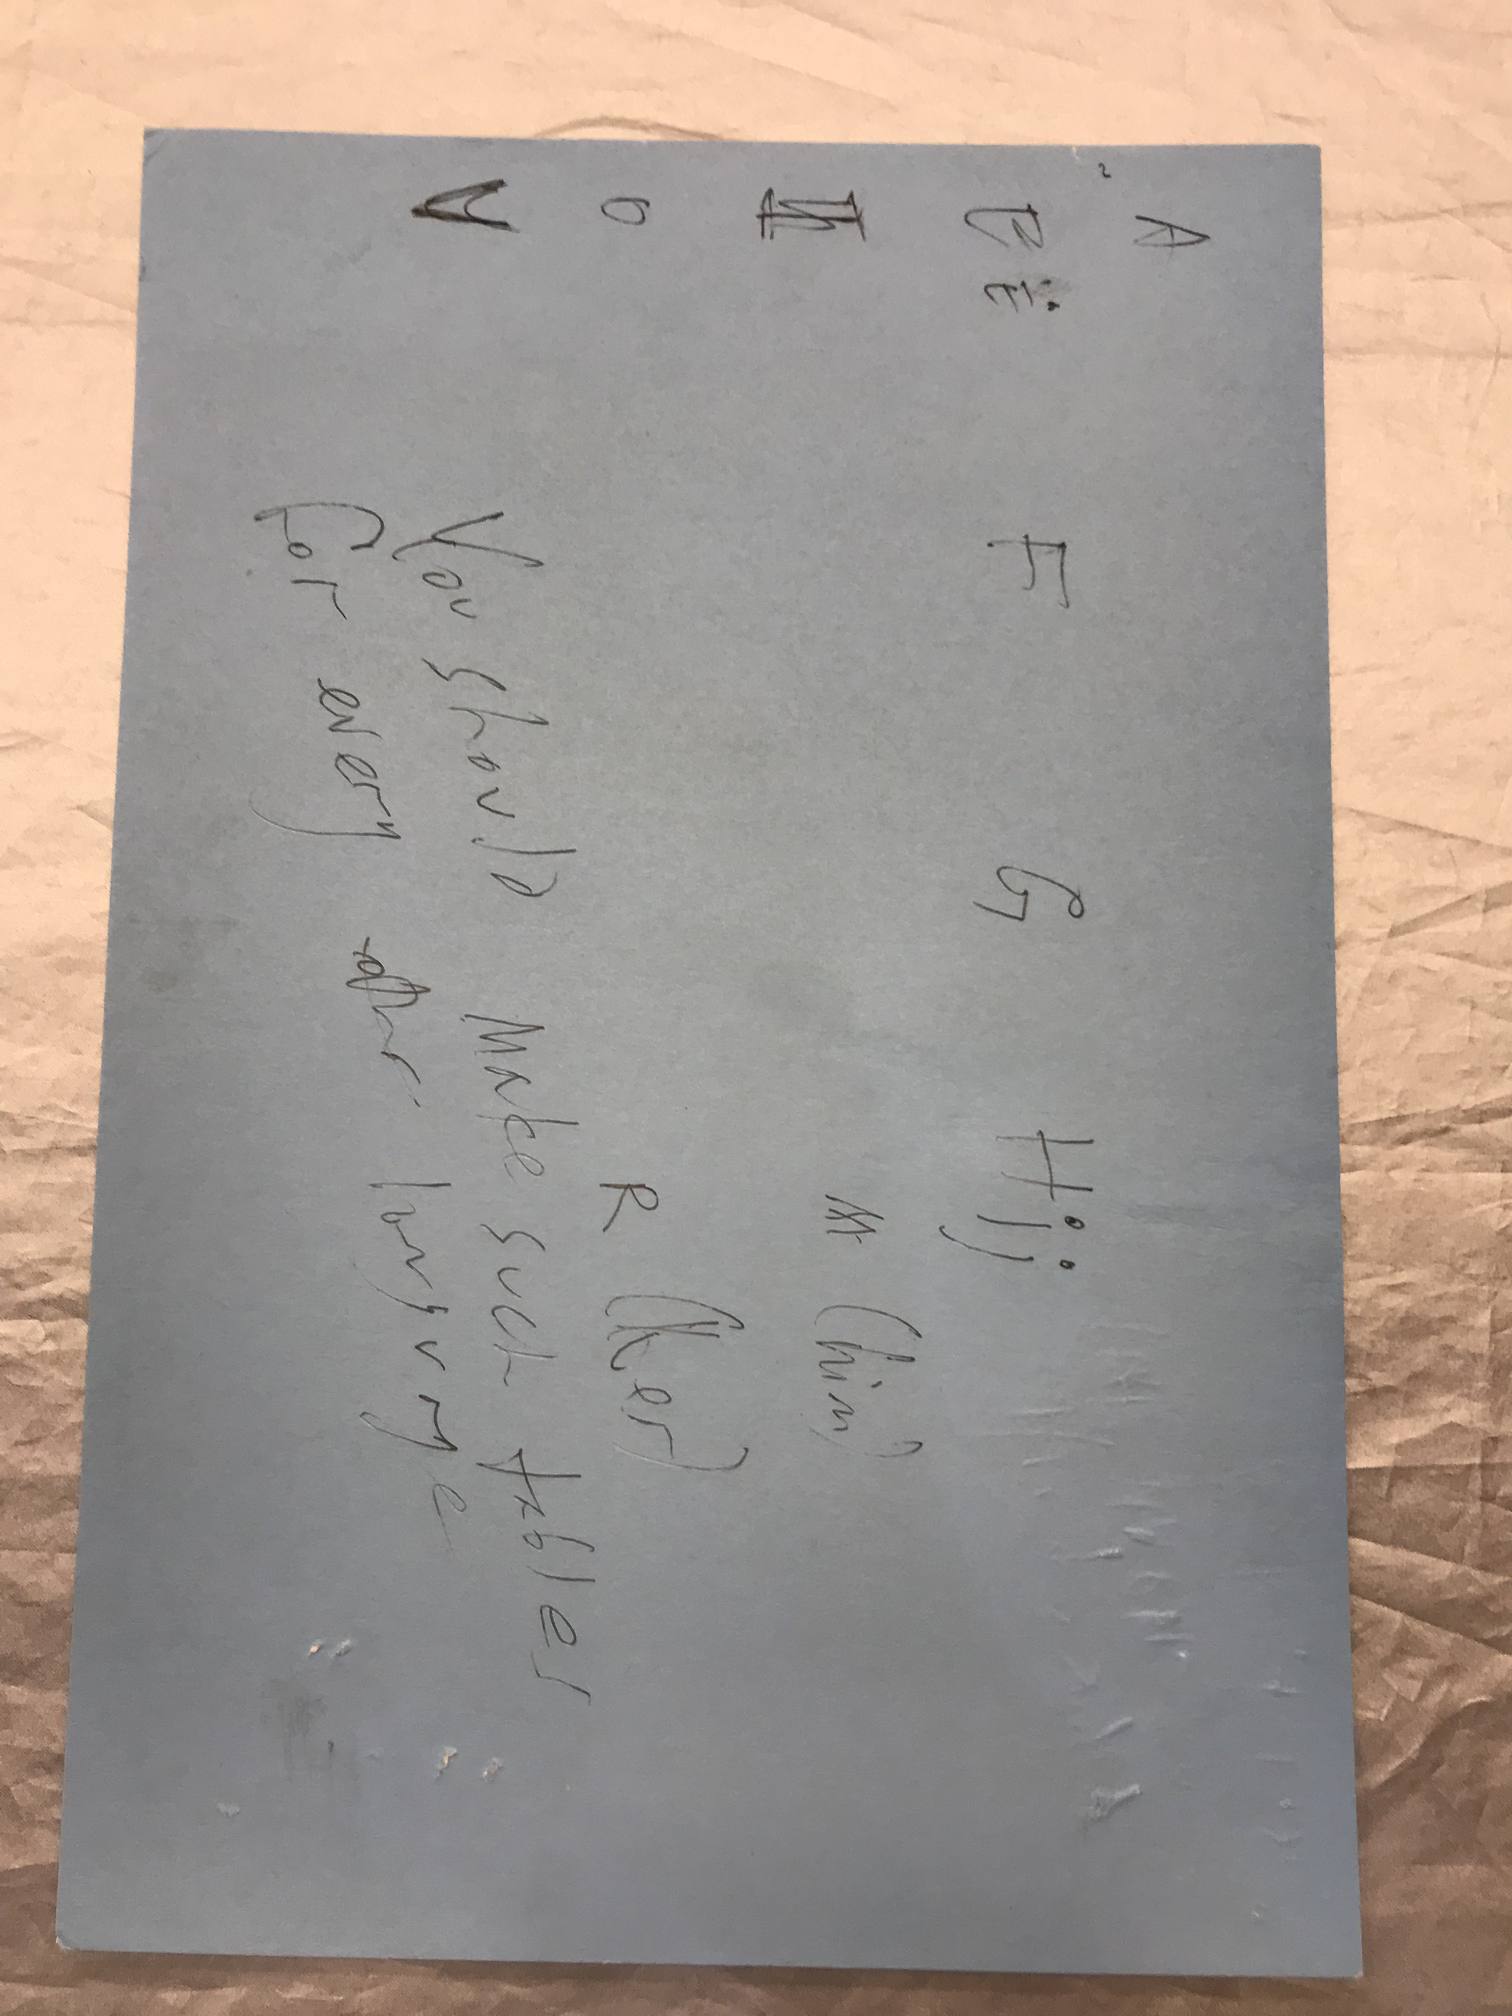 A
E F G H i j
M (him)
O R (Ker)
V
You should make such tables
for every other language